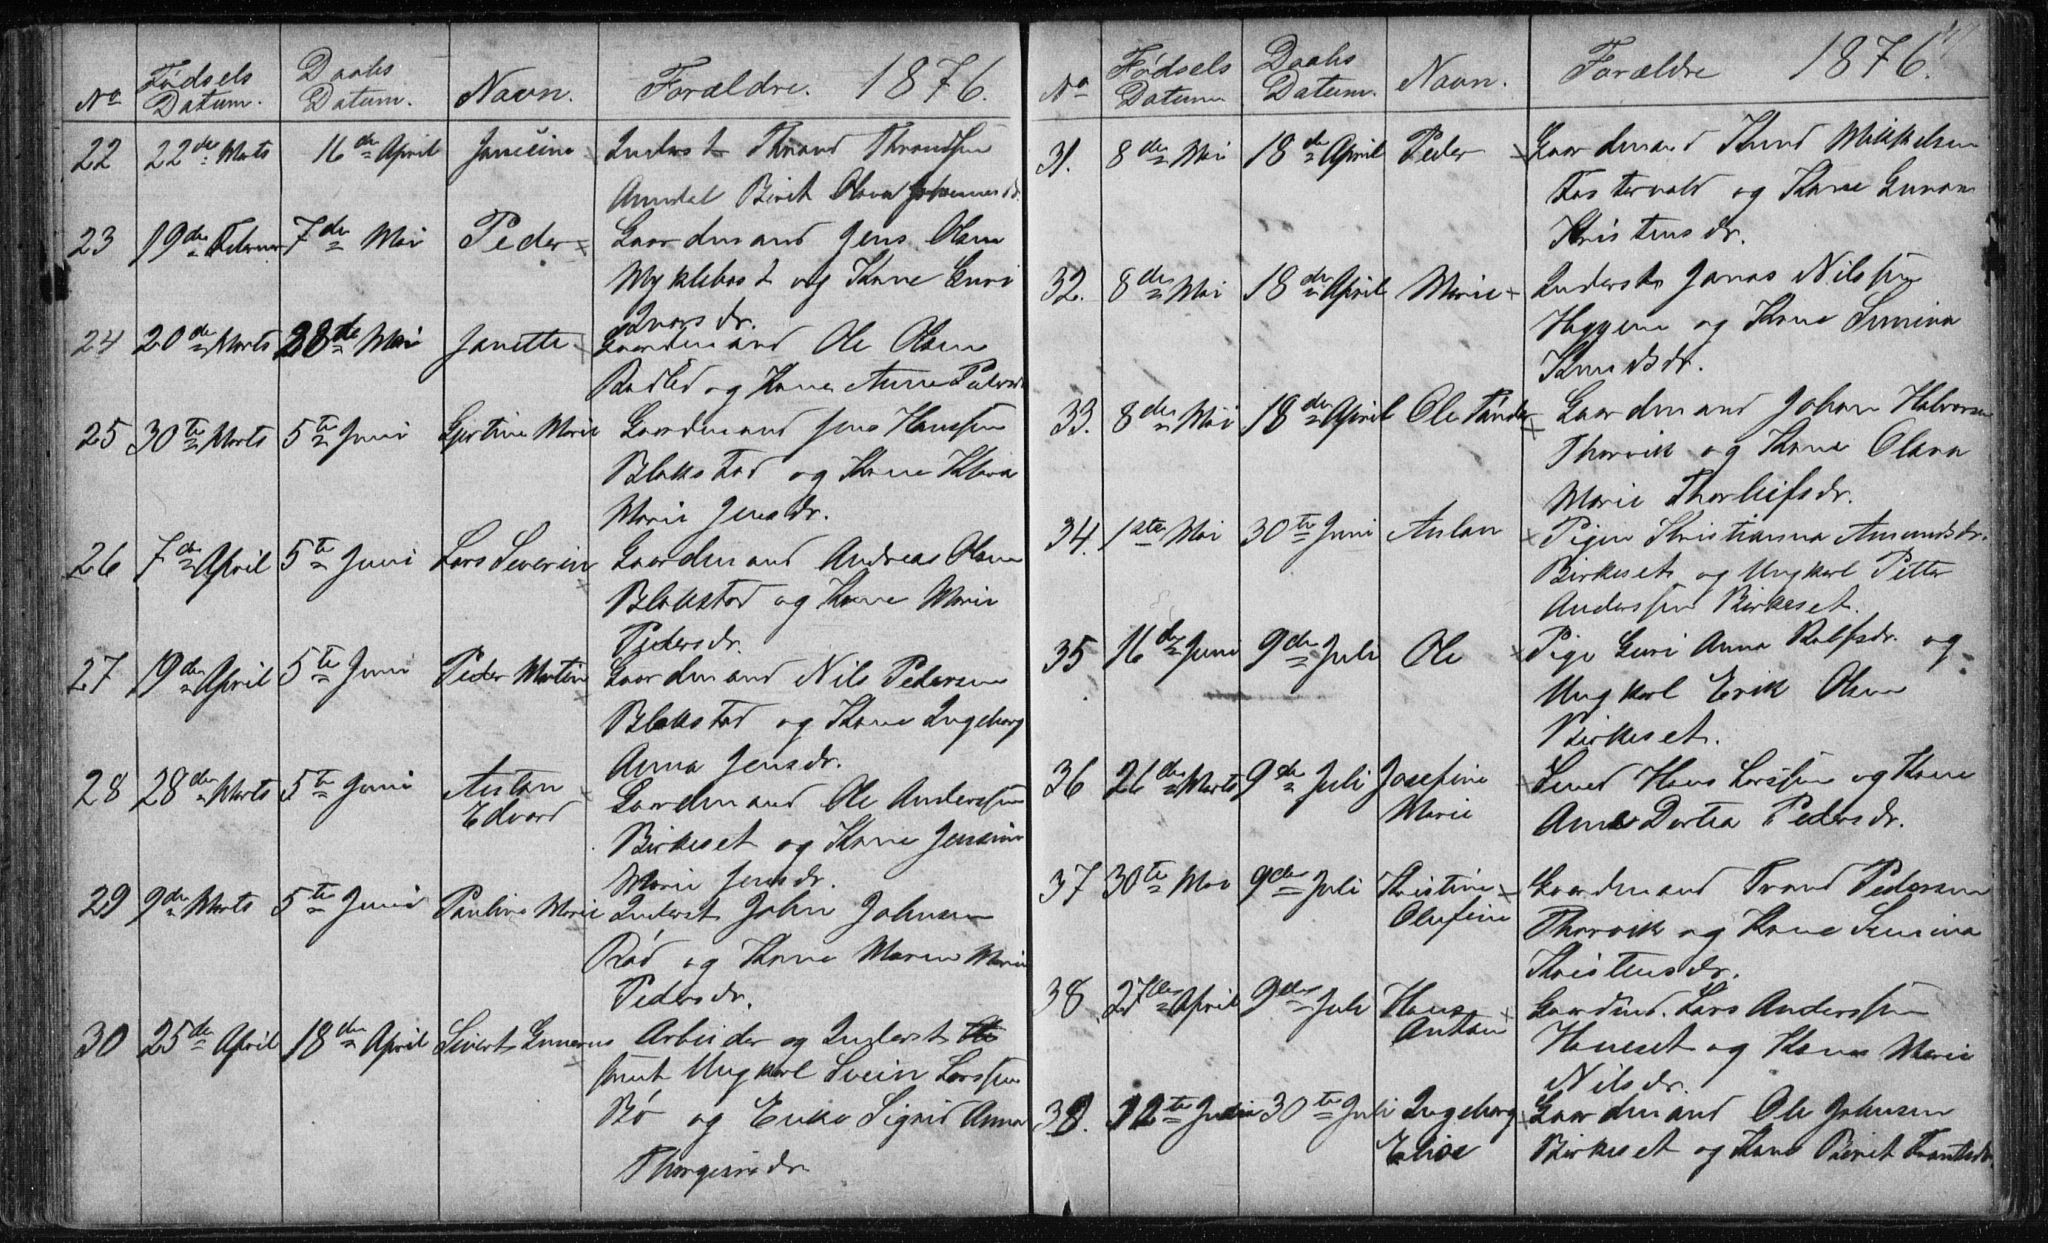 No Fødsels Datum. Daabs Datum. Navn. Forældre. 1876.
22 22de Marts 16de April Inderst Thrand Thrandsen
Birit Olava
23 19de Februar 7de Mai Peder Gaardmand Jens Olsen
Myklebost og Kone Guri
Ivarsdr.
24 20de Marts 28de Mai Janette Gaardmand Ole Olsen
og Kone Anne
25 30te Marts 5te Juni Gjertine Marie Gaardmand Jens Hanssen
Blakstad og Kone
Marie Jensdr.
26 7de April 5te Juni Lars Severin Gaardmand Andreas Olsen
Blakstad og Kone Marie
Pedersdr.
27 19de April 5te Juni Peder Martin Gaardmand Nils Pedersen
Blakstad og Kone Ingeborg
Anna Jensdr.
28 28de Marts 5te Juni Anton Gaardmand Ole Anderssen
Edvard Birkeset og Kone Jensine
Marie Jensdr.
29 9de Marts 5te Juni Pauline Marie Inderst John Johnsen
Rød og Kone Maren Marie
Pedersdr.
30 25de April 18de April Sivert Gunerus Arbeider og Inderst
samt Ungkarl Svein Larssen
Bø og Enke Sigrid Anna
No Fødsels Datum Daabs Datum. Navn. Forældre 1876.
31. 8de Mai 18de April Peder Gaardmand Knud Mikkelsen
Fostervold og Kone Gunan
Kristensdr.
32. 8de Mai 18de April Marie Inderst Jonas Nilssen
Haggene og Kone
Knudsdr.
33. 8de Mai 18de April Ole Gaardmand Johan Halvorsen
Thorvik og Kone Olava
Marie Thorleifsdr.
34. 1ste Mai 30te Juni Anton Pigen Kristianna Amundsdr.
Birkeset og Ungkarl Petter
Anderssen Birkeset.
35 16de Juni 9de Juli Ole Pige Guri Anna Rolfsdr. og
Ungkarl Erik Olsen
Birkeset.
36 26de Marts 9de Juli Josefine Hans Larssen og Kone
Marie Ane Dortea Pedersdr.
37 30te Mai 9de Juli Kristine Gaardmand Trond Pedersen
Olufine Thorvik og Kone
Kristensdr.
38. 27de April 9de Juli Hans Gaardmd. Lars Anderssen
Anton Haneset og Kone Marie
Nilsdr.
39. 12te 30te Juli Ingeborg Gaardmand Ole Johnsen
Elise Birkeset og Kone Berit